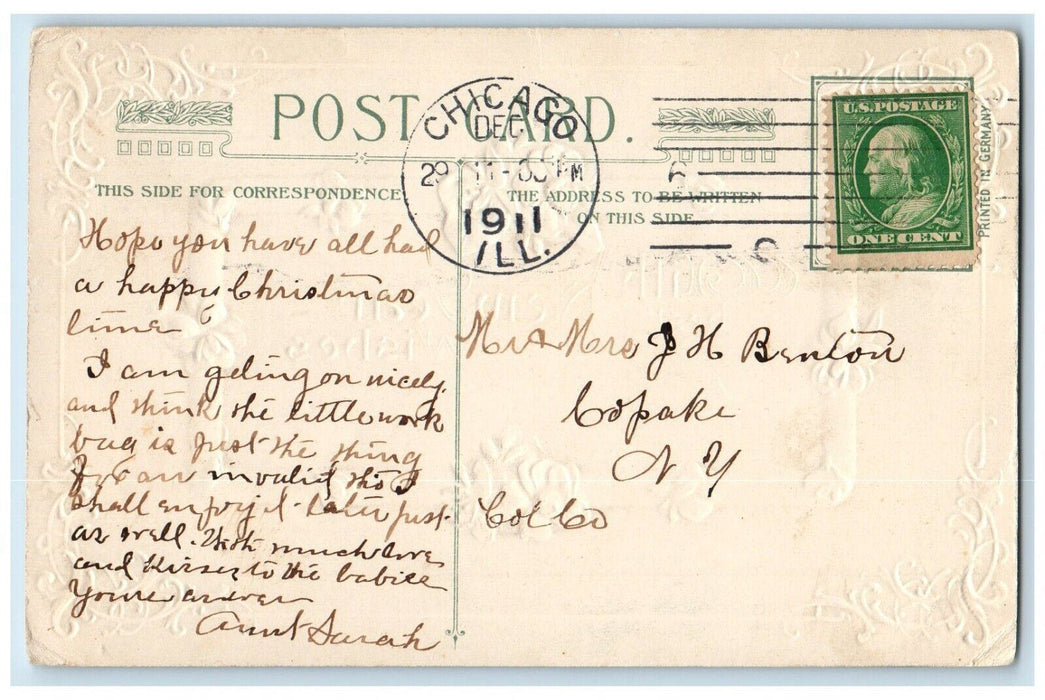 POST CARD.
THIS SIDE FOR CORRESPONDENCE
THE ADDRESS TO BE WRITTEN
ON THIS SIDE
CHICAGO
DEC
29 11- PM
1911
ILL.
U.S. POSTAGE
ONE CENT
PRINTED IN GERMANY
Hope you have all had
a happy Christmas
time
I am geting on nicely,
and think the little work
bag is just the thing
for an invalid tho I
shall enjoy it later just
as well. With much love
and kisses to the babies
Yours as ever
Aunt Sarah
Mr & Mrs J H Benton
Copake
N Y
Col Co